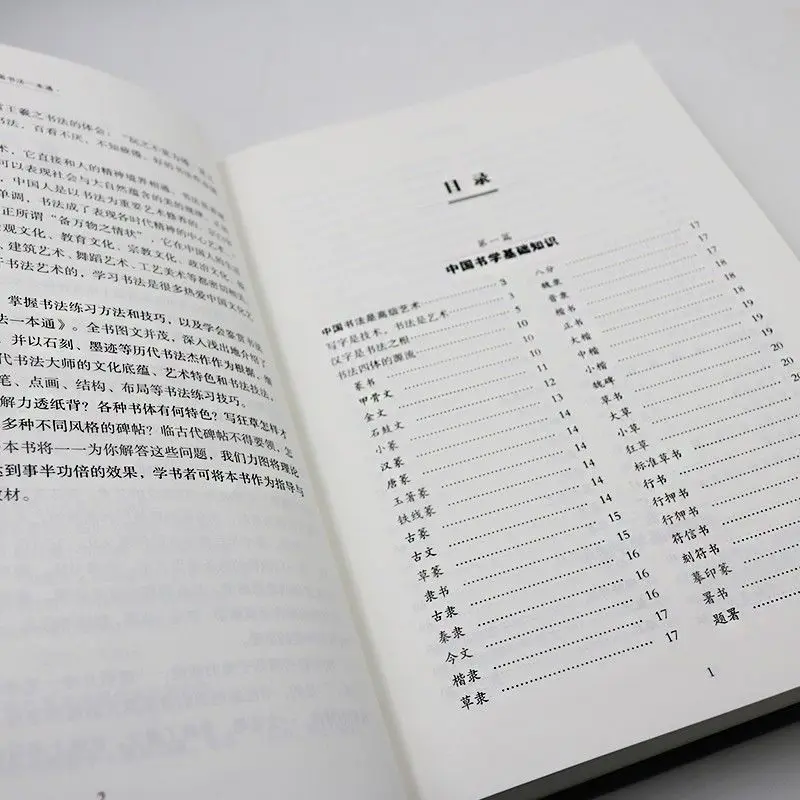 书法一本通
王羲之书法的体会：
书法，百看不厌，不知疲倦，好的书法作
术，它直接和人的精神境界相通，书法是
可以表现社会与大自然蕴含的美的规律，
中国人是以书法为重要艺术修养的。
单调，书法成了表现各时代精神的中心艺术。
正所谓“备万物之情状”，它在中国人的生活
观文化、教育文化、宗教文化、政治文化、
、建筑艺术、舞蹈艺术、工艺美术等都密切相关
书法艺术的，学习书法是很多热爱中国文化
掌握书法练习方法和技巧，以及学会鉴赏书法
法一本通》。全书图文并茂，深入浅出地介绍了
并以石刻、墨迹等历代书法杰作作为根据，
代书法大师的文化底蕴、艺术特色和书法技法，
笔、点画、结构、布局等书法练习技巧。
解力透纸背？各种书体有何特色？写狂草怎样才
多种不同风格的碑帖？临古代碑帖不得要领，怎
本书将一一为你解答这些问题，我们力图将理论
达到事半功倍的效果，学书者可将本书作为指导与
教材。
2
目录
第一篇
中国书学基础知识
中国书法是高级艺术 3
写字是技术，书法是艺术 3
汉字是书法之根 5
书法四体的源流 10
篆书 10
甲骨文 10
金文 10
石鼓文 11
小篆 12
汉篆 13
唐篆 14
玉箸篆 14
铁线篆 14
古篆 14
古文 14
草篆 15
隶书 15
古隶 16
秦隶 16
今文 16
楷隶 17
草隶 17
八分 17
魏隶
章隶
楷书
正书
大楷
中楷
小楷
魏碑
草书
大草
小草
狂草
标准草书
行书
行押书
行狎书
符信书
刻符书
摹印篆
署书
题署
1